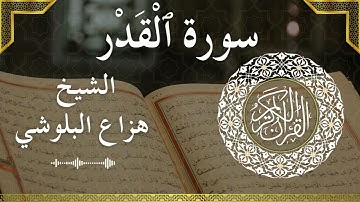 سورة ٱلْقَدْر
الشيخ
هزاع البلوشي
القرآن الكريم